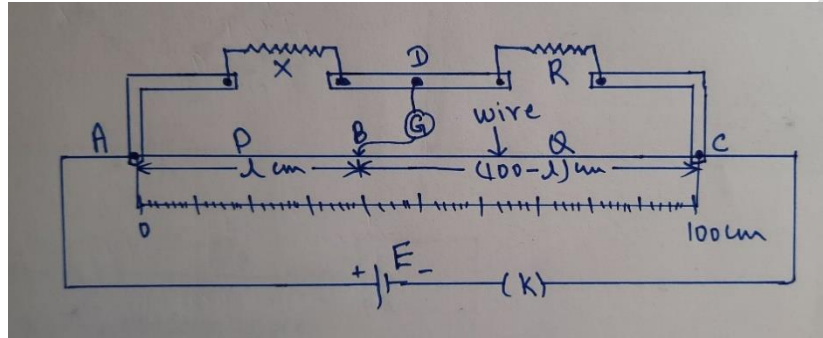 D
X R
G
wire
A P B Q C
l cm (100-l) cm
0 100cm
+ E - (K)